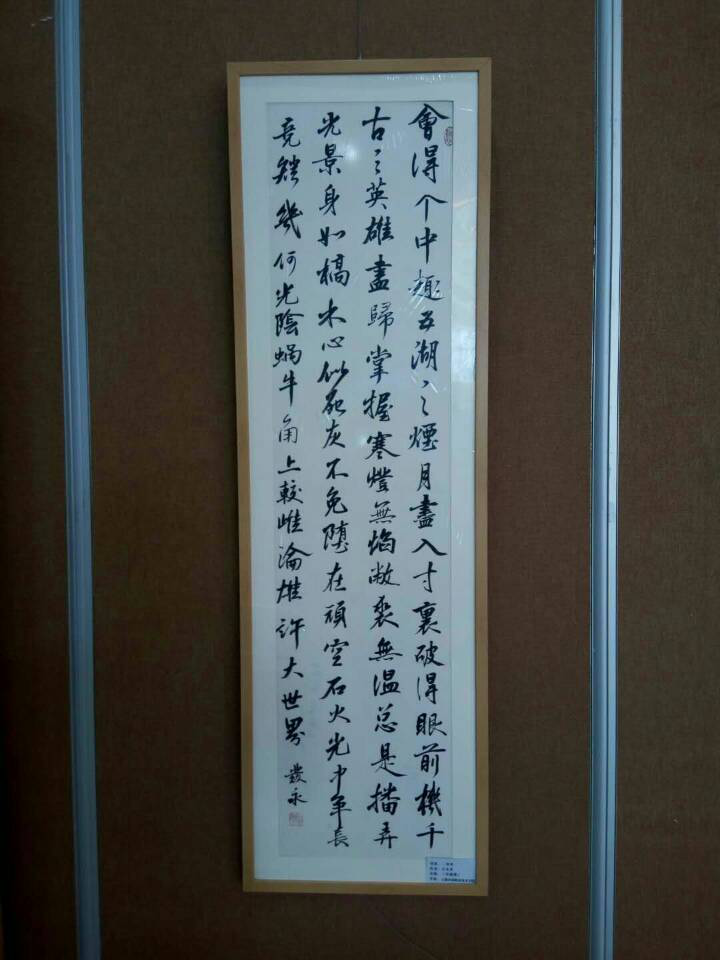 會得个中趣五湖之煙月盡入寸裏破得眼前機千
古之英雄盡歸掌握寒燈無焰敝裘無温总是播弄
光景身如槁木心似死灰不免堕在頑空石火光中争長
竞短幾何光陰蝸牛角上較雌論雄許大世界